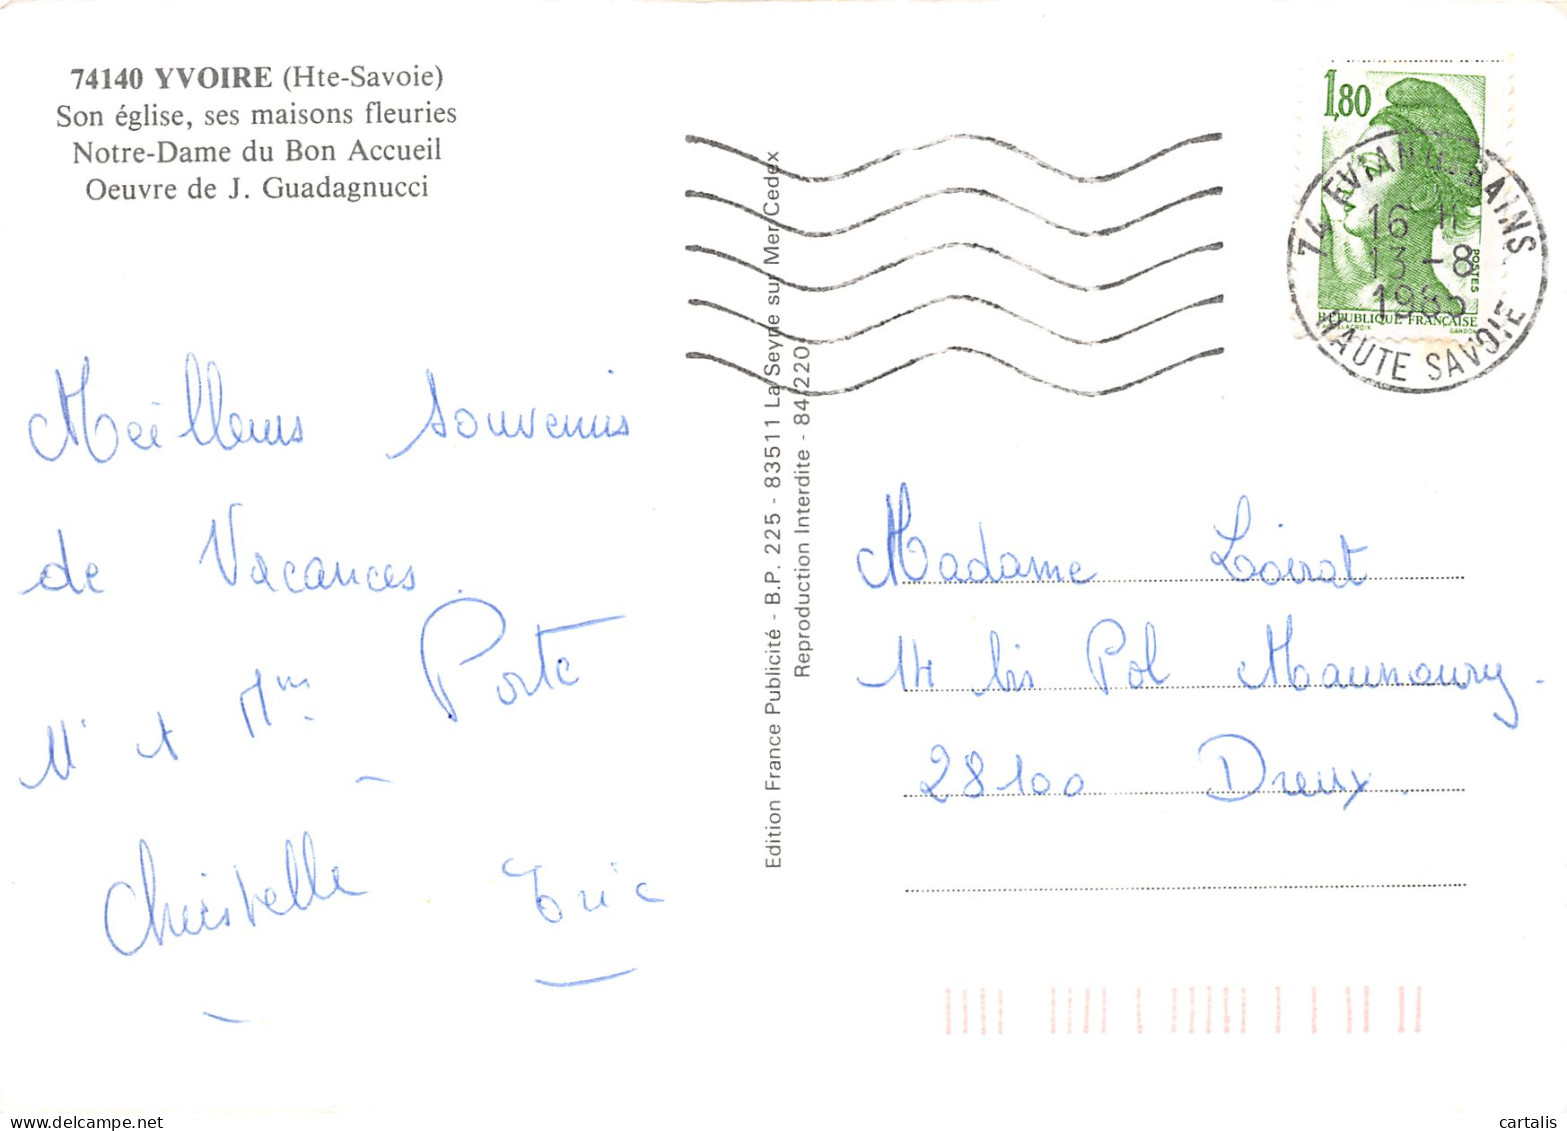 74140 YVOIRE (Hte-Savoie)
Son église, ses maisons fleuries
Notre-Dame du Bon Accueil
Oeuvre de J. Guadagnucci
Meilleurs souvenirs
de Vacances.
Mr et Mme Porte
Christelle Eric
Edition France Publicité - B.P. 225 - 83511 La Seyne sur Mer Cedex
Reproduction Interdite - 84/220
1,80
POSTES
RÉPUBLIQUE FRANÇAISE
DELACROIX GANDON
74 EVIAN LES BAINS
16 H
13 - 8
1985
HAUTE SAVOIE
Madame Loirat
14 bis Pol Maunoury.
28100 Dreux.
delcampe.net
cartalis